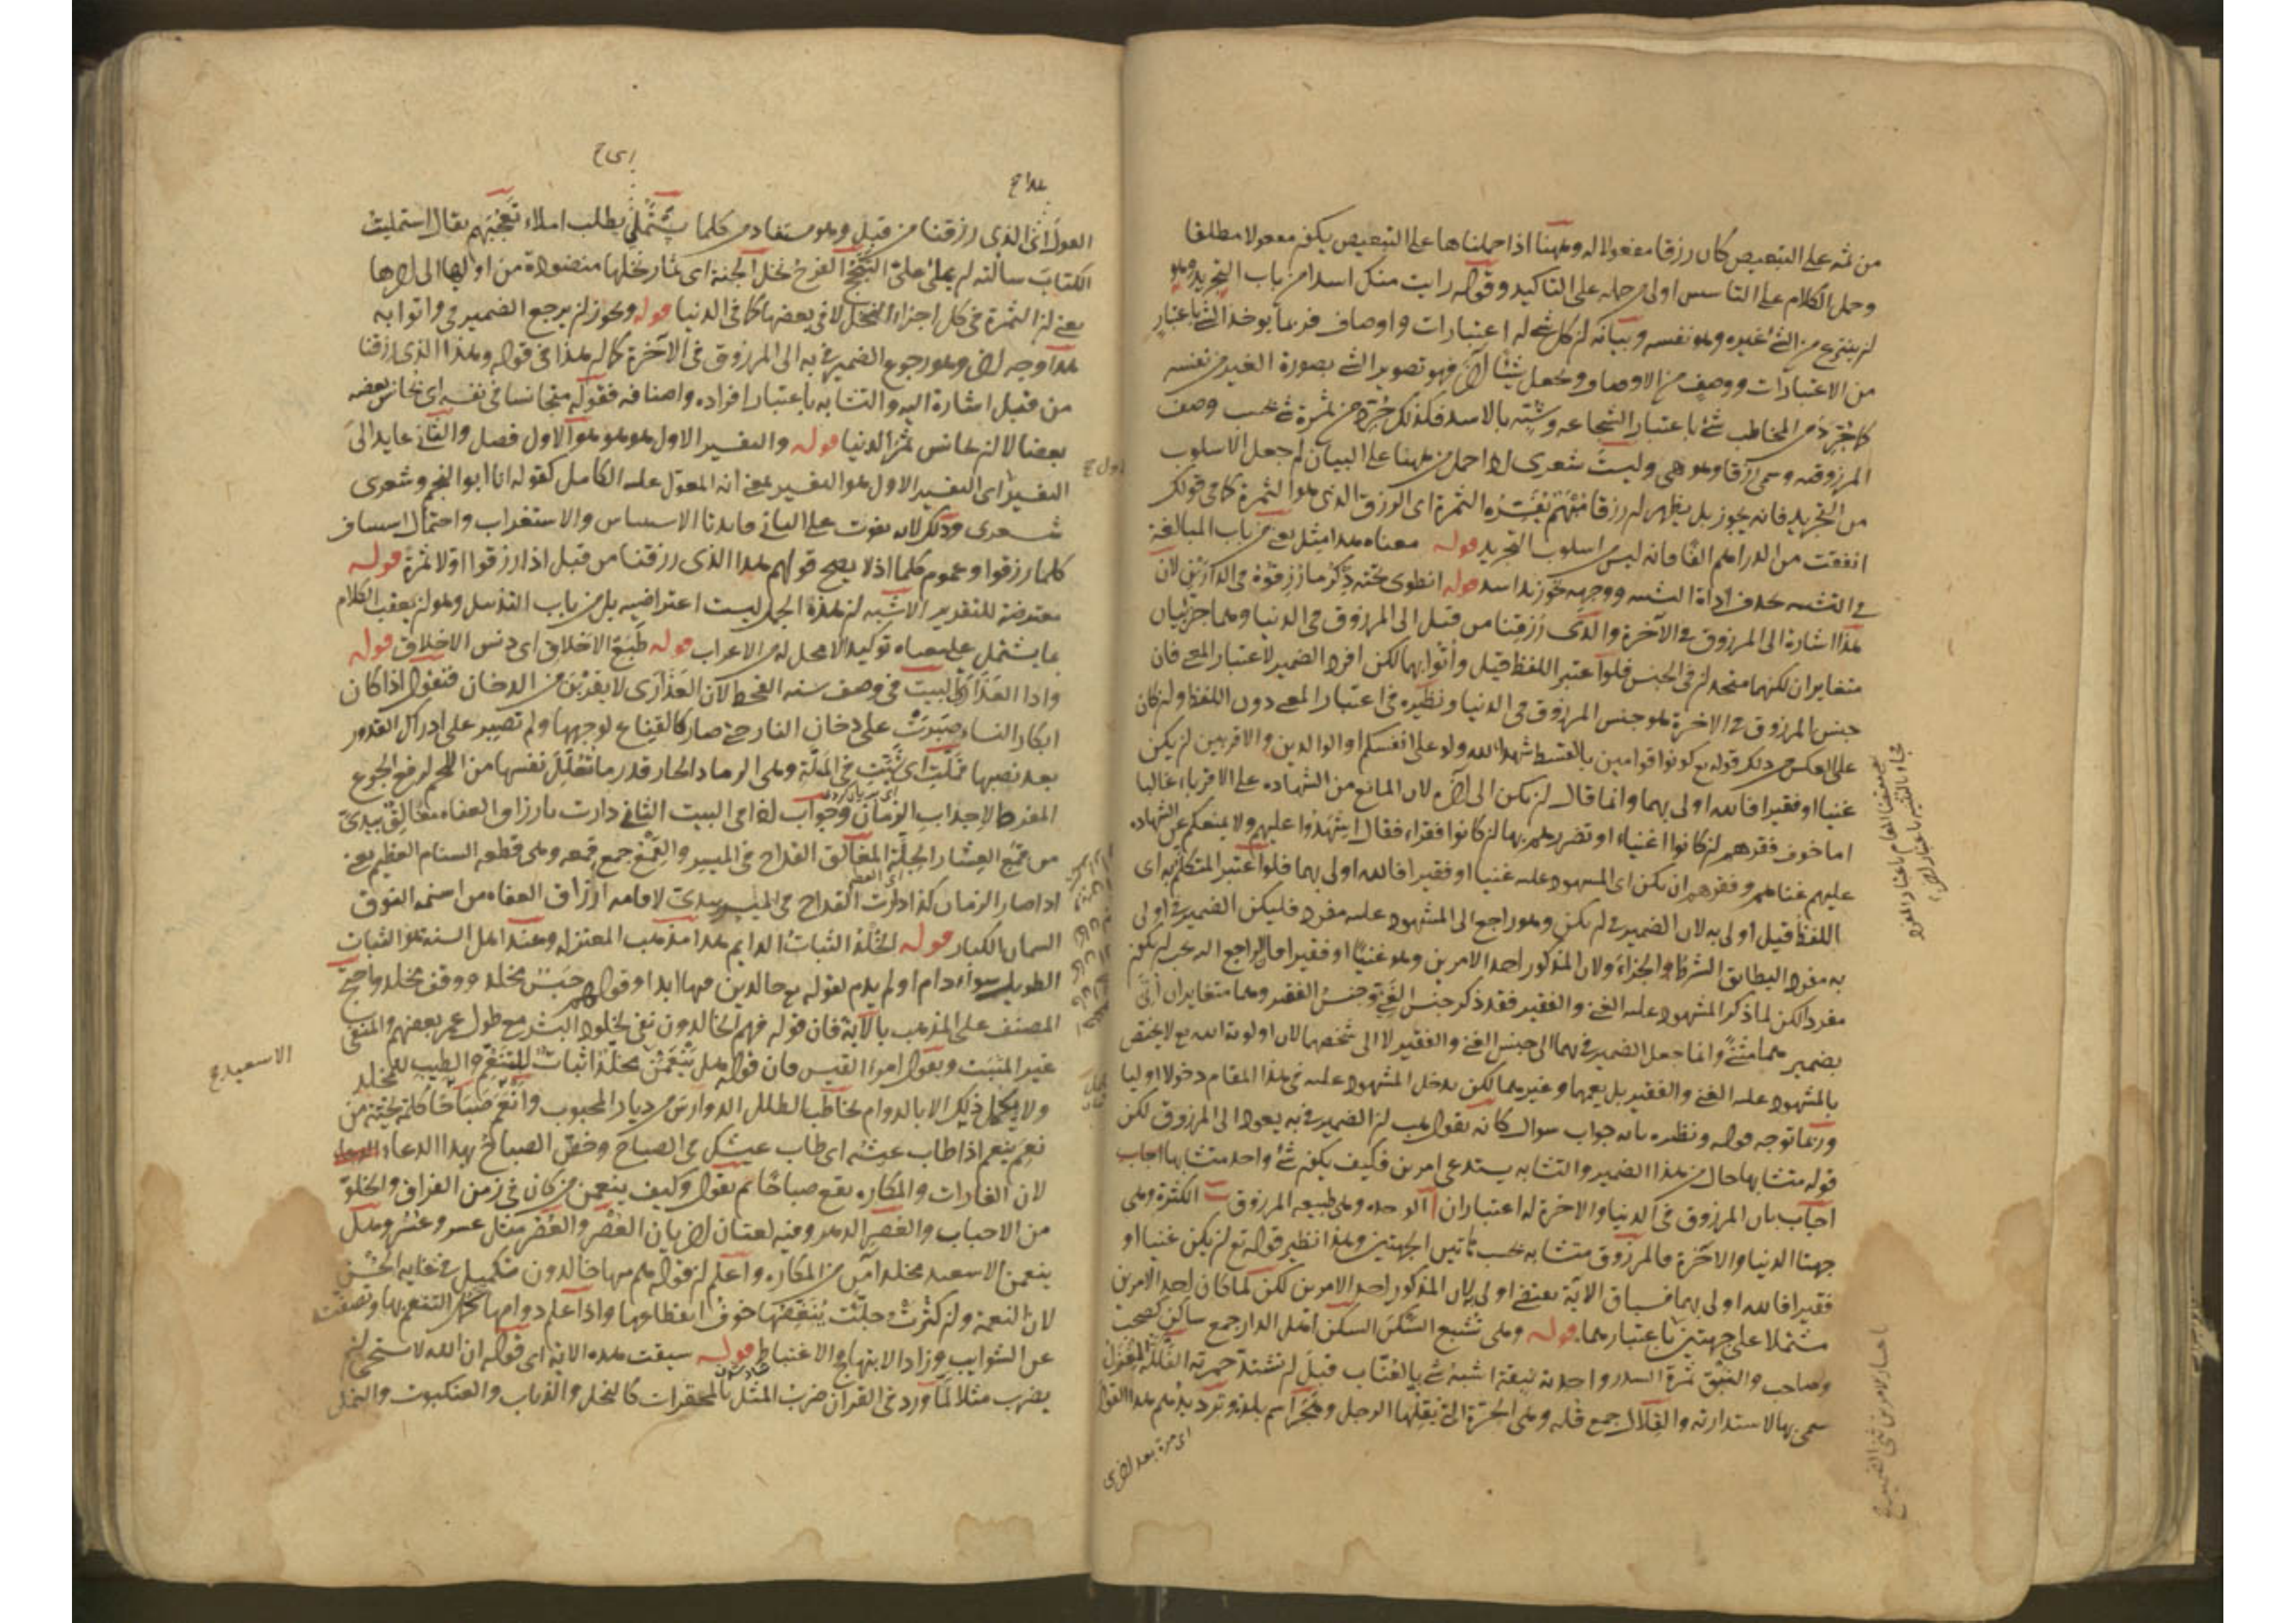 من ثمه على التبعيض كان رزقا مفعولا له وههنا اذا حملناها على التبعيض يكون مفعولا مطلقا
وحمل الكلام على التاسيس اولى من حمله على التاكيد وقوله رايت منك اسدا من باب التجريد وهو
ان ينتزع من الشئ غيره وهو نفسه وبيانه ان كل شئ له اعتبارات واوصاف فربما يوخذ الشئ باعتبار
من الاعتبارات ووصف من الاوصاف ويجعل شيئا آخر فهو تصوير الشئ بصورة الغير من نفسه
كما جرد من المخاطب شئ باعتبار الشجاعه وشبه بالاسد فكذلك جرد من ثمرة شئ بحسب وصف
المرزوقيه وسمى رزقا وهو هى وليت شعرى اذا حمل من ههنا على البيان لم جعل الاسلوب
من التجريد فانه يجوز بل يظهر ان رزقا مبهم يفسره الثمرة اى الرزق الذى هو الثمرة كما فى قولك
انفقت من الدراهم الفا فانه ليس من اسلوب التجريد قوله معناه هذا مثل يعنى من باب المبالغة
فى التشبيه بحذف اداة التشبيه ووجهه نحو زيد اسد قوله انطوى تحته ذكر ما رزقوه فى الدارين لان
هذا اشارة الى المرزوق فى الآخرة والذى رزقنا من قبل الى المرزوق فى الدنيا وهما جزئيان
متغايران لكنهما متحدان فى الجنس فلو اعتبر اللفظ قيل وأتوا بهما لكن افرد الضمير لاعتبار المعنى فان
جنس المرزوق فى الاخرة هو جنس المرزوق فى الدنيا ونظيره فى اعتبار المعنى دون اللفظ وان كان
على العكس من ذلك قوله تع كونوا قوامين بالقسط شهداء لله ولو على انفسكم او الوالدين والاقربين ان يكن
غنيا او فقيرا فالله اولى بهما وانما قال ان يكن الى آخره لان المانع من الشهاده على الاقرباء غالبا
اما خوف فقرهم ان كانوا اغنياء او تضررهم بها ان كانوا فقراء فقال اشهدوا عليهم ولا يمنعكم عن الشهاده
عليهم غناهم وفقرهم ان يكن اى المشهود عليه غنيا او فقيرا فالله اولى بهما فلو اعتبر المتكلم به اى
اللفظ قيل اولى به لان الضمير فى ان يكن وهو راجع الى المشهود عليه مفرد فليكن الضمير فى اولى
به مفردا ليطابق الشرط والجزاء ولان المذكور احد الامرين وهو غنيا او فقيرا فالراجع اليه يجب ان يكون
مفردا لكن لما ذكر المشهود عليه الغنى والفقير فقد ذكر جنس الغنى وجنس الفقير وهما متغايران أتى
بضمير هما مثنى وانما جعل الضمير فى بهما الى جنس الغنى والفقير لا الى شخصهما لان اولوية الله تع لا يختص
بالمشهود عليه الغنى والفقير بل يعمهما وغيرهما لكن يدخل المشهود عليه فى هذا المقام دخولا اوليا
وربما توجه قوله ونظيره بانه جواب سوال كانه يقول هب ان الضمير فى به يعود الى المرزوق لكن
قوله متشابها حال من هذا الضمير والتشابه يستدعى امرين فكيف يكون شئ واحد متشابها اجاب
اجاب بان المرزوق فى الدنيا والاخرة له اعتباران ا الوحده وهى طبيعه المرزوق ب الكثرة وهى
جهتا الدنيا والآخرة فالمرزوق متشابه بحسب هاتين الجهتين وهذا نظير قوله تع ان يكن غنيا او
فقيرا فالله اولى بهما فسياق الآية يقتضى اولى به لان المذكور احد الامرين لكن لما كان احد الامرين
مشتملا على جهتين باعتبارهما قوله وهى تشبع السكن السكن اهل الدار جمع ساكن كصحب
وصاحب والنبق ثمرة السدر واحدته نبقة اشبه شئ بالعناب قبل ان تشتد حمرته الفلكة المغزل
سمى بها لاستدارته والقلال جمع قله وهى الجرة التى يقلها الرجل وهجر اسم بلد وترديدهم هذا القول
اى مرة بعد اخرى
هذا ح
اى ح
القول اى الذى رزقنا من قبل وهو مستفاد من كلما يستملى يطلب املاء تعجبهم يقال استمليت
الكتاب سالته ان يملى على التبجح الفرح نخل الجنة اى ثمار نخلها منضودة من اولها الى آخرها
يعنى ان الثمرة فى كل اجزاء النخل لا فى بعضها كما فى الدنيا قوله ويجوز ان يرجع الضمير فى واتوا به
هذا وجه آخر وهو رجوع الضمير فى به الى المرزوق فى الآخرة كما ان هذا فى قوله وهذا الذى رزقنا
من قبل اشارة اليه والتشابه باعتبار افراده واصنافه فقوله متجانسا فى نفسه اى يجانس بعضه
بعضا لا انه يجانس ثمر الدنيا قوله والتفسير الاول هو هو هو الاول فصل والثانى عايد الى
التفسير اى التفسير الاول هو التفسير بمعنى انه المعول عليه الكامل كقوله انا ابو النجم وشعرى
شعرى وذلك لانه يفوت على الثانى فايدتا الاستيناس والاستغراب واحتمال استيناف
كلما رزقوا وعموم كلما اذ لا يصح قولهم هذا الذى رزقنا من قبل اذا رزقوا اولا ثمرة قوله
معترضة للتقدير الاشبه ان هذه الجمل ليست اعتراضيه بل من باب التذييل وهو ان يعقب الكلام
بما يشتمل على معناه توكيدا لا محل له من الاعراب قوله طبع الاخلاق اى دنس الاخلاق قوله
واذا العذارى البيت فى وصف سنه القحط لان العذارى لا يقربن من الدخان فنقول اذا كان
ابكار النساء صبرت على دخان النار حتى صار كالقناع لوجهها ولم تصبر على ادراك القدور
بعد نصبها فملت اى شوت فى الملة وهى الرماد الحار قدر ما تعلل نفسها من اللحم لرفع الجوع
المفرط لاجداب الزمان وجواب اذا فى البيت الثانى دارت بارزاق العفاه مغالق بيدى
من قمع العشار الجلة المغالق القداح فى الميسر والقمع جمع قمعه وهى قطعه السنام العظيم يعنى
اذا صار الزمان كذا دارت القداح فى الميسر بيدى لاقامه ارزاق العفاه من اسنمه النوق
السمان الكبار قوله الخلد الثبات الدايم هذا مذهب المعتزله وعند اهل السنه هو الثبات
الطويل سواء دام او لم يدم لقوله تع خالدين فيها ابدا وقولهم حبس مخلد ووقف مخلد واحتج
المصنف على المذهب بالآية فان قوله فهم الخالدون نفى لخلود البشر مع طول عمر بعضهم والمنفى
غير المثبت وبقول امرء القيس فان قوله هل ينعمن مخلد اثبات للتنعم والطيب للمخلد
ولا يكمل ذلك الا بالدوام يخاطب الطلل الدوارس من ديار المحبوب وانعم صباحا كلمة تحية من
نعم ينعم اذا طاب عيشه اى طاب عيشك فى الصباح وخص الصباح بهذا الدعاء
لان الغارات والمكاره يقع صباحا ثم يقول وكيف ينعمن من كان فى زمن الفراق والخلو
من الاحباب والعصر الدهر وفيه لغتان اخريان العصر والعصر مثل عسر وعسر وهل
ينعمن الا سعيد مخلد آمن من المكاره واعلم ان قوله هم فيها خالدون تكميل فى غايه الحسن
لان النعمة وان كثرت وجلت ينغصها خوف انقطاعها واذا علم دوامها كمل التنعم بها وتصفت
عن الشوايب وزاد الابتهاج والاغتباط قوله سيقت هذه الاية اى قوله ان الله لا يستحيى ان
يضرب مثلا لما ورد فى القرآن ضرب المثل بالمحقرات كالنحل والذباب والعنكبوت والنمل
الا سعيد ح